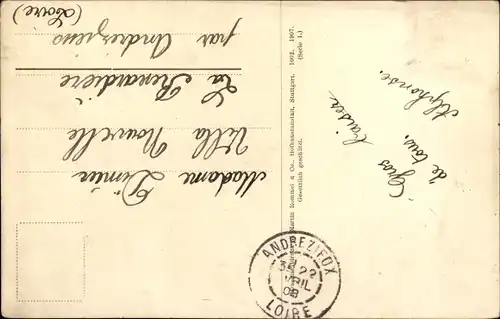 Madame
Villa Nouvelle
La Renardière
par Andrézieux
(Loire)
Martin Rommel & Co., Hofkunstanstalt, Stuttgart. 1692, 1907.
Gesetzlich geschützt. (Serie I.)
Gros baisers
de tous.
Alphonse.
ANDREZIEUX
22
AVRIL
08
LOIRE